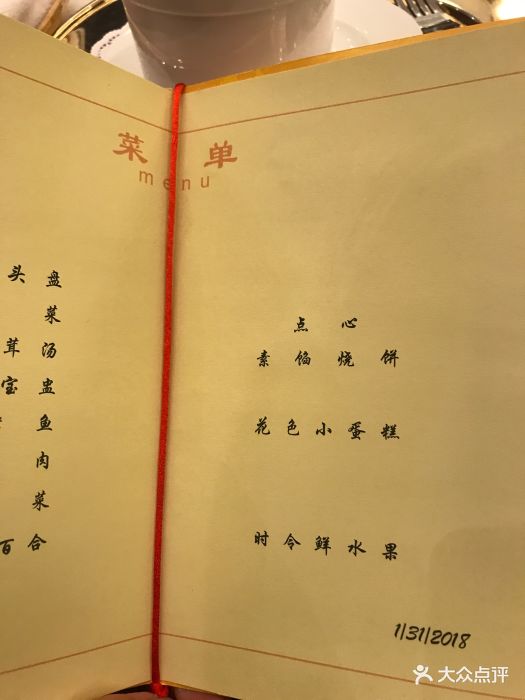 菜 单
menu
头 盘
菜
茸 汤
宝 盅
鱼
肉
菜
百 合
点 心
素 馅 烧 饼
花 色 小 蛋 糕
时 令 鲜 水 果
1/31/2018
大众点评